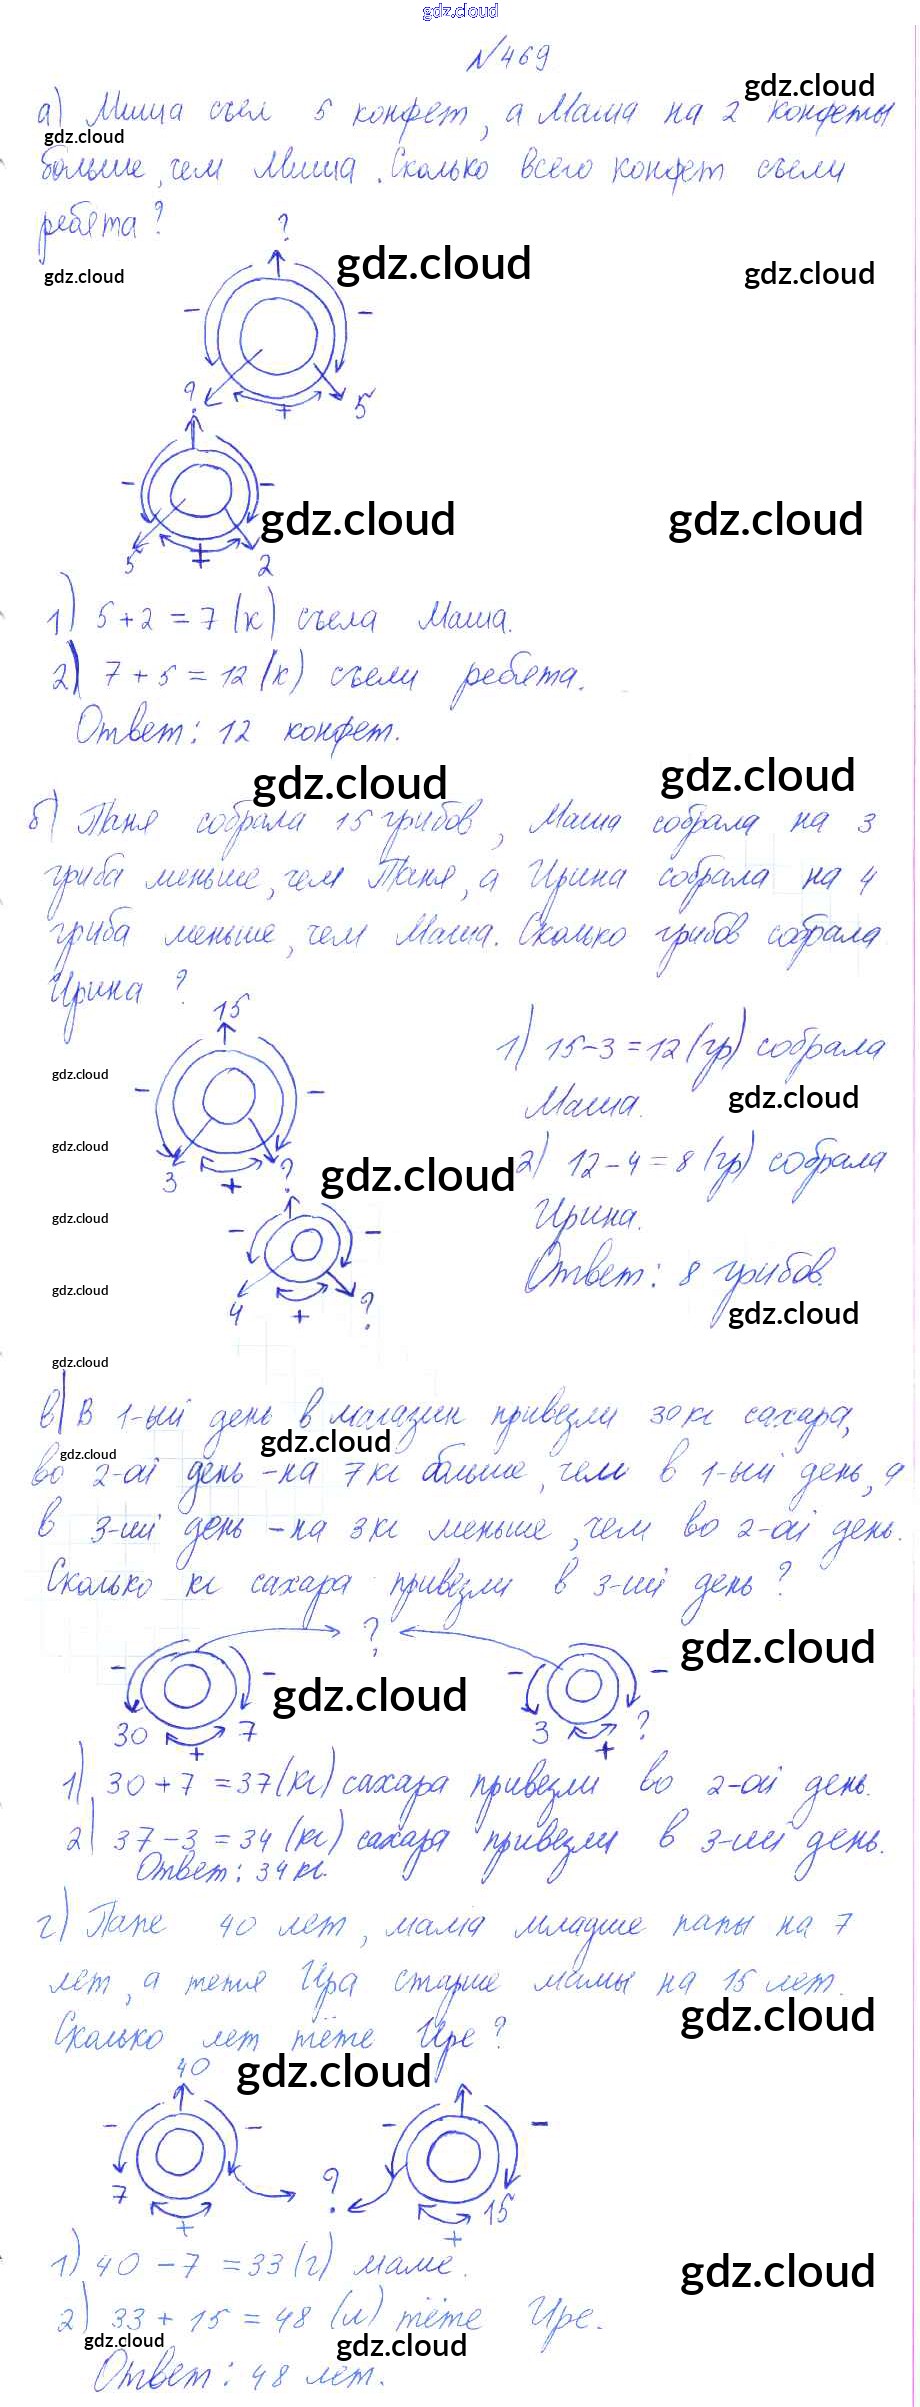 gdz.cloud
№469
gdz.cloud
а) Миша съел 5 конфет, а Маша на 2 конфеты
gdz.cloud
больше, чем Миша. Сколько всего конфет съели
ребята?
?
gdz.cloud gdz.cloud gdz.cloud
- -
? + 5
- -
gdz.cloud gdz.cloud
5 + 2
1) 5+2=7(к) съела Маша.
2) 7+5=12(к) съели ребята.
Ответ: 12 конфет.
gdz.cloud gdz.cloud
б) Таня собрала 15 грибов, Маша собрала на 3
гриба меньше, чем Таня, а Ирина собрала на 4
гриба меньше, чем Маша. Сколько грибов собрала
Ирина ?
15
1) 15-3=12(гр) собрала
gdz.cloud
- -
Маша.
gdz.cloud
gdz.cloud
2) 12-4=8(гр) собрала
3 + ?
gdz.cloud
Ирина.
gdz.cloud
- -
Ответ: 8 грибов.
gdz.cloud
4 + ?
gdz.cloud
gdz.cloud
в) В 1-ый день в магазин привезли 30кг сахара,
gdz.cloud
gdz.cloud
во 2-ой день - на 7кг больше, чем в 1-ый день, а
в 3-ий день - на 3кг меньше, чем во 2-ой день.
Сколько кг сахара привезли в 3-ий день?
?
gdz.cloud
- - - -
gdz.cloud
30 + 7 3 + ?
1) 30+7=37(кг) сахара привезли во 2-ой день.
2) 37-3=34(кг) сахара привезли в 3-ий день.
Ответ: 34кг.
г) Папе 40 лет, мама младше папы на 7
лет, а тётя Ира старше мамы на 15 лет.
gdz.cloud
Сколько лет тёте Ире?
40
gdz.cloud
- - - -
7 + ? + 15
1) 40-7=33(г) маме.
gdz.cloud
2) 33+15=48(л) тёте Ире.
gdz.cloud gdz.cloud
Ответ: 48 лет.